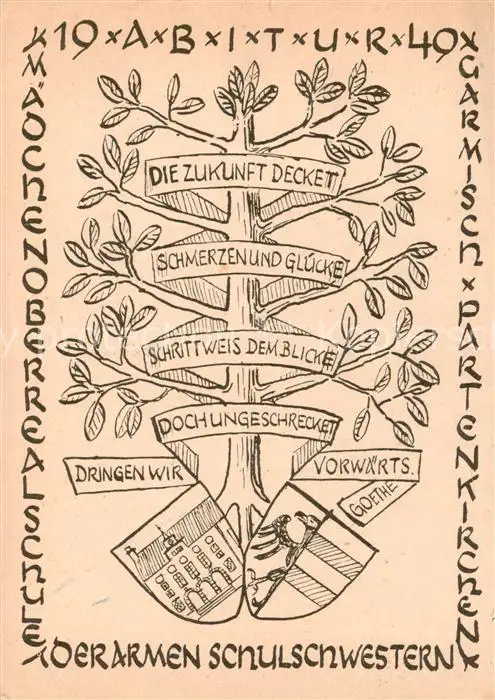 19 × A × B × I × T × U × R × 49
× MÄDCHENOBERREALSCHULE
× DER ARMEN SCHULSCHWESTERN ×
× GARMISCH × PARTENKIRCHEN
DIE ZUKUNFT DECKET
SCHMERZEN UND GLÜCKE
SCHRITTWEIS DEM BLICKE
DOCH UNGESCHRECKET
DRINGEN WIR
VORWÄRTS.
GOETHE